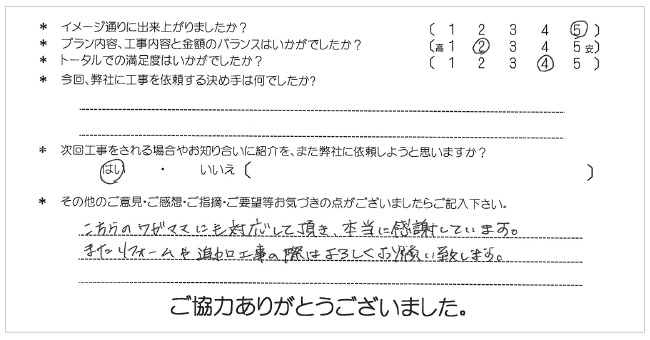 * イメージ通りに出来上がりましたか? ( 1 2 3 4 5 )
* プラン内容、工事内容と金額のバランスはいかがでしたか? (高 1 2 3 4 5 安)
* トータルでの満足度はいかがでしたか? ( 1 2 3 4 5 )
* 今回、弊社に工事を依頼する決め手は何でしたか?
* 次回工事をされる場合やお知り合いに紹介を、また弊社に依頼しようと思いますか?
はい ・ いいえ ( )
* その他のご意見・ご感想・ご指摘・ご要望等お気づきの点がございましたらご記入下さい。
こちらのワガママにも対応して頂き、本当に感謝しています。
またリフォームや追加工事の際はよろしくお願い致します。
ご協力ありがとうございました。